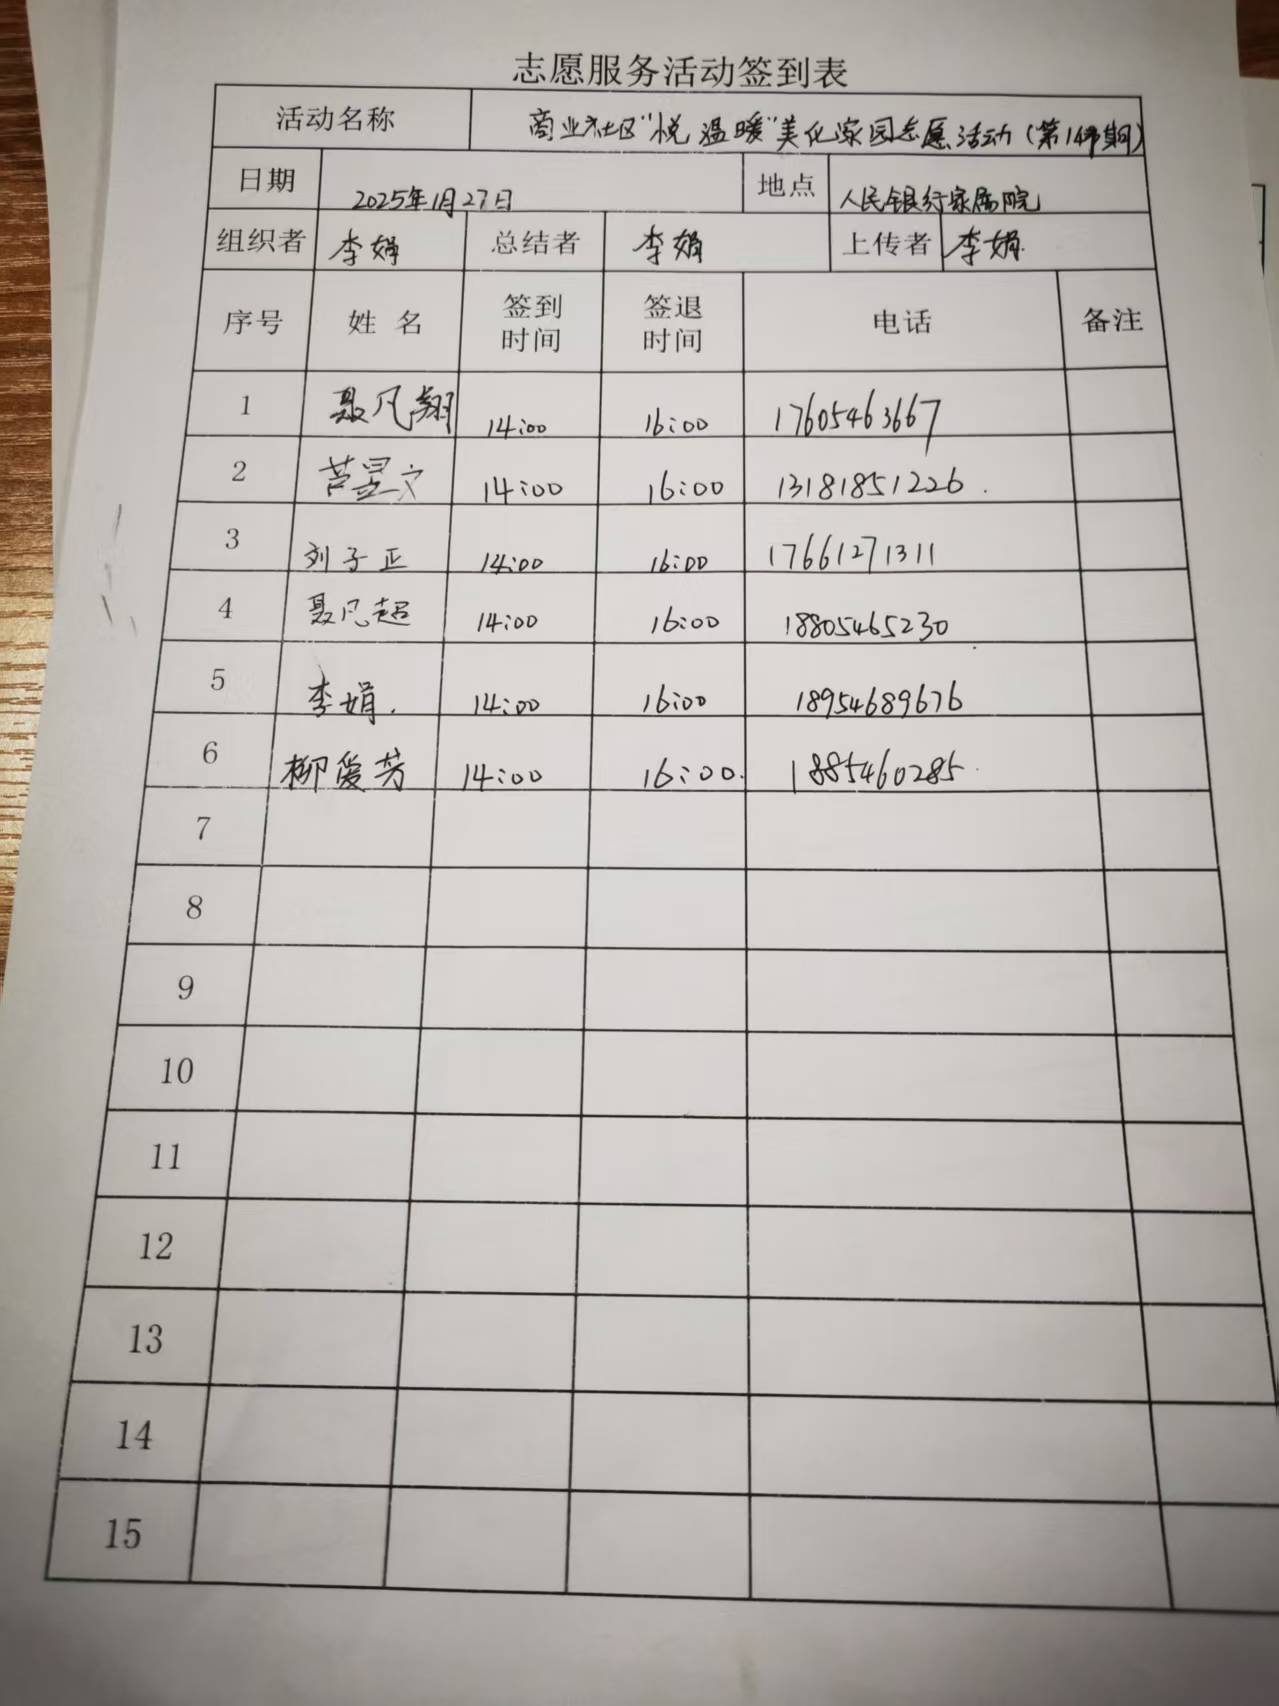 志愿服务活动签到表
活动名称 商业社区“悦温暖”美化家园志愿活动(第14期)
日期 2025年1月27日 地点 人民银行家属院
组织者 李娟 总结者 李娟 上传者 李娟
序号 姓名 签到时间 签退时间 电话 备注
1 聂凡翔 14:00 16:00 17605463667
2 芦昱文 14:00 16:00 13181851226
3 刘子正 14:00 16:00 17661271311
4 聂凡超 14:00 16:00 18805465230
5 李娟 14:00 16:00 18954689676
6 柳爱芳 14:00 16:00 1885460285
7
8
9
10
11
12
13
14
15